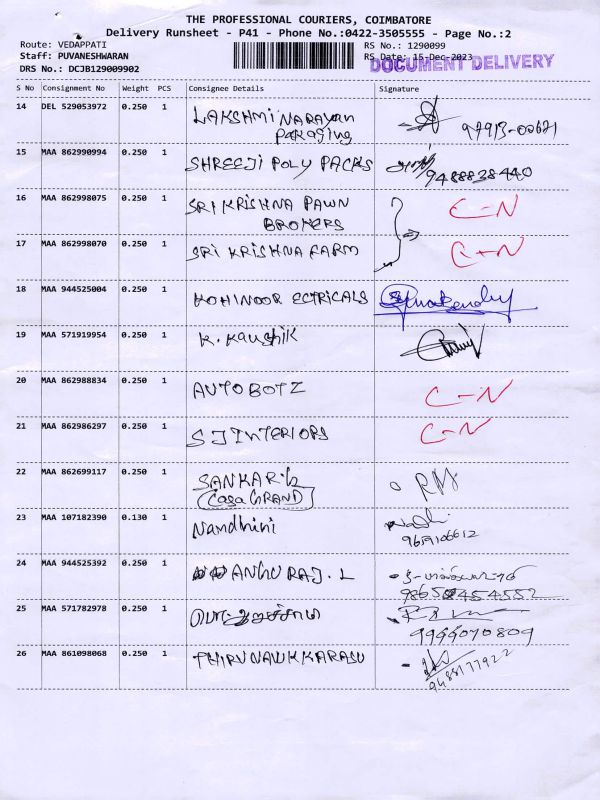 THE PROFESSIONAL COURIERS, COIMBATORE
Delivery Runsheet - P41 - Phone No.:0422-3505555 - Page No.:2
Route: VEDAPPATI
RS No.: 1290099
Staff: PUVANESHWARAN
RS Date: 15-Dec-2023
DOCUMENT DELIVERY
DRS No.: DCJB129009902
S No Consignment No Weight PCS Consignee Details Signature
14 DEL 529053972 0.250 1 LAKSHMI NARAYAN
Packaging
15 MAA 862990994 0.250 1 SHREEJI POLY PACKS
9488838440
16 MAA 862998075 0.250 1 SRI KRISHNA PAWN C-N
BROKERS
17 MAA 862998070 0.250 1 SRI KRISHNA FARM C-N
18 MAA 944525004 0.250 1 KOHINOOR ECTRICALS
19 MAA 571919954 0.250 1 K. Kaushik
20 MAA 862988834 0.250 1 AUTOBOTZ C-N
21 MAA 862986297 0.250 1 SJ INTERIORS C-N
22 MAA 862699117 0.250 1 SANKAR
(Casa GRAND)
23 MAA 107182390 0.130 1 Nandhini
9659106612
24 MAA 944525392 0.250 1 ANGU RAJ. L
25 MAA 571782978 0.250 1
9994070809
26 MAA 861098068 0.250 1 THIRUNAVUKKARASU
9488177922